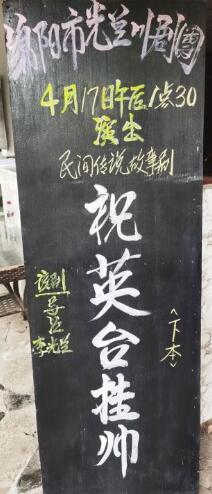 绵阳市光兰川剧团
4月17日午后1点30
演出
民间传说故事剧
祝英台挂帅
〈下本〉
该剧导兰
李光兰